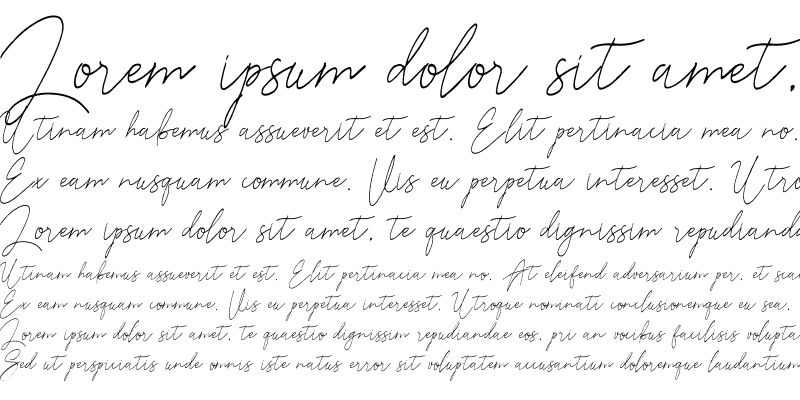 Lorem ipsum dolor sit amet.
Utinam habemus assueverit et est. Elit pertinacia mea no.
Ex eam nusquam commune. Vis eu perpetua interesset. Utro
Lorem ipsum dolor sit amet, te quaestio dignissim repudianda
Utinam habemus assueverit et est. Elit pertinacia mea no. At eleifend adversarium per, et scae
Ex eam nusquam commune. Vis eu perpetua interesset. Utroque nominati conclusionemque eu sea.
Lorem ipsum dolor sit amet, te quaestio dignissim repudiandae eos, pri an vocibus facilisis volupta
Sed ut perspiciatis unde omnis iste natus error sit voluptatem accusantium doloremque laudantium